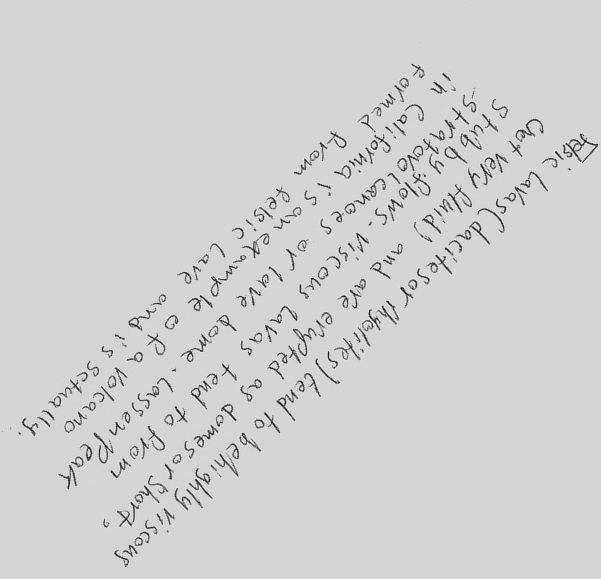 Felsic Lavas(dacites or rhyolites) tend to be highly viscous
(not very fluid) and are erypted as domes or short,
stubby flows. Viscous lavas tend to from
stratovolcanoes or lave dome. Lassen Peak
in California is an example of a volcano
formed from felsic lave and is sctually.